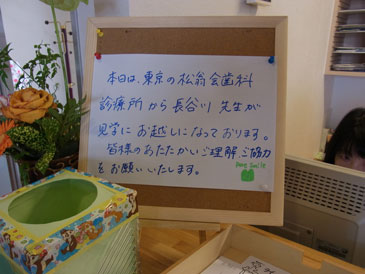 本日は、東京の松翁会歯科
診療所から長谷川先生が
見学にお越しになっております。
皆様のあたたかいご理解、ご協力
をお願いいたします。